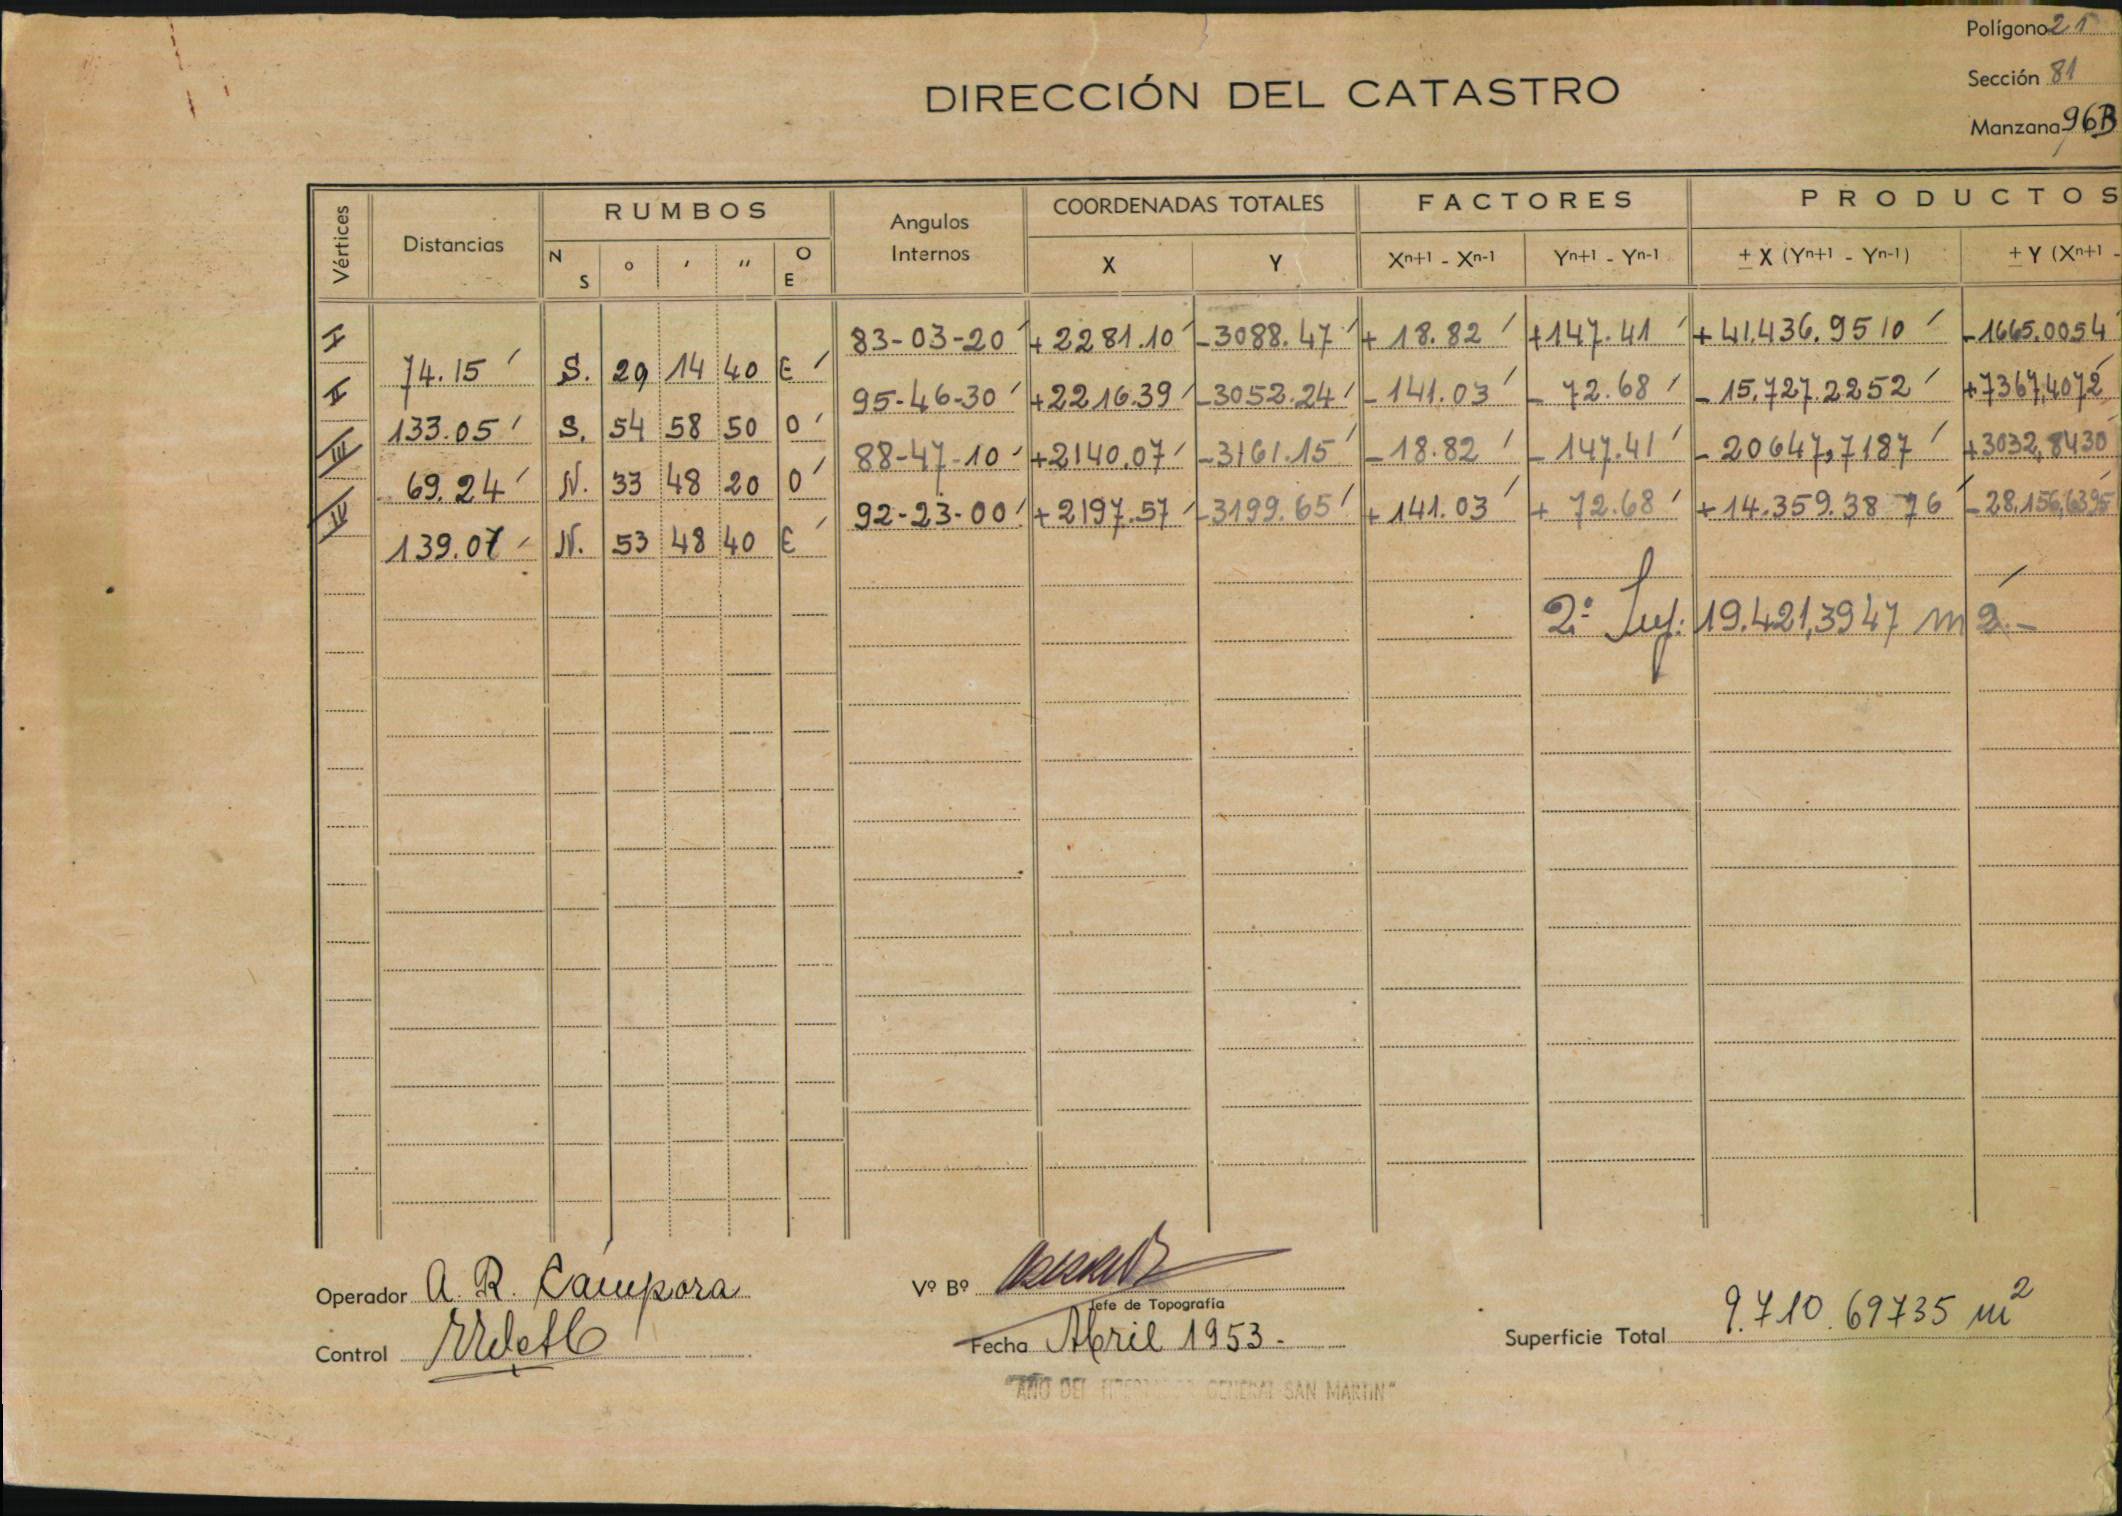 Polígono 21
DIRECCIÓN DEL CATASTRO
Sección 81
Manzana 96B
Vértices Distancias RUMBOS Angulos Internos COORDENADAS TOTALES FACTORES PRODUCTOS
N S ° ' '' O E X Y Xn+1 - Xn-1 Yn+1 - Yn-1 ± X (Yn+1 - Yn-1) ± Y (Xn+1 -
I 83-03-20 +2281.10 -3088.47 +18.82 +147.41 +41.436.9510 -1665.0054
74.15 S. 29 14 40 E
II 95-46-30 +2216.39 -3052.24 -141.03 -72.68 -15.727.2252 +7367,4072
133.05 S. 54 58 50 O
III 88-47-10 +2140.07 -3161.15 -18.82 -147.41 -20647,7187 +3032,8430
69.24 N. 33 48 20 O
IV 92-23-00 +2197.57 -3199.65 +141.03 +72.68 +14.359.3876 -28,156,6395
139.07 N. 53 48 40 E
2º Sup: 19.421,3947 m2.-
Operador A. R. Cámpora Vº Bº
Jefe de Topografía
Control Fecha Abril 1953.- Superficie Total 9.710.69735 m2
"AÑO DEL GENERAL SAN MARTIN"